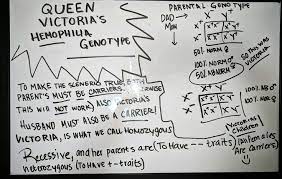 QUEEN
VICTORIA'S
HEMOPHILIA
GENOTYPE
PARENTAL GENOTYPE
DAD→
MOM
X Y
50% NORM
100% NORM♂
50% ABNORM♀
SO THIS WAS
VICTORIA
TO MAKE THE SCENERIO TRUE, BOTH
PARENTS MUST BE CARRIERS,
THIS WILL NOT WORK) ALSO VICTORIA'S
HUSBAND MUST ALSO BE A CARRIER!
VICTORIA, IS WHAT WE CALL HOMOZYGOUS
RECESSIVE, and her parents are (To HAVE -- traits)
heterozygous (To HAVE +- traits)
X Y
100% AB♂
100% NO♀
Victoria's
Children
(All females
Are carriers)